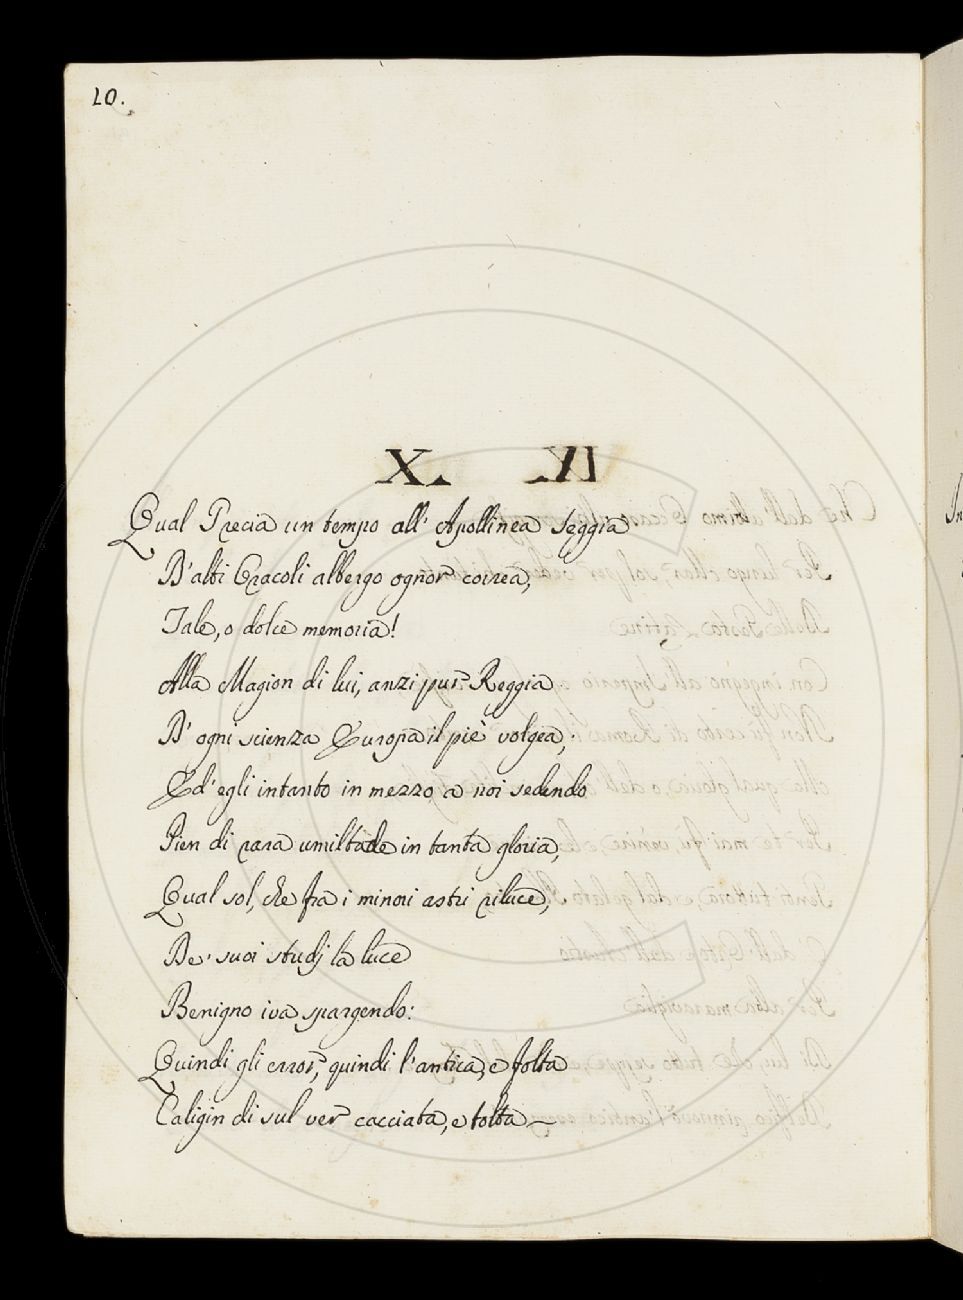 10.
X.
Qual Grecia un tempo all' Apollinea seggia
D'alti Oracoli albergo ognor correa,
Tale, o dolce memoria!
Alla Magion di lui, anzi pur Reggia
D' ogni scienza Europa il piè volgea;
Ed' egli intanto in mezzo a noi sedendo
Pien di rara umiltade in tanta gloria,
Qual sol, che fra i minori astri riluce,
De' suoi studj la luce
Benigno iva spargendo:
Quindi gli error, quindi l'antica, e folta
Caligin di sul ver cacciata, e tolta